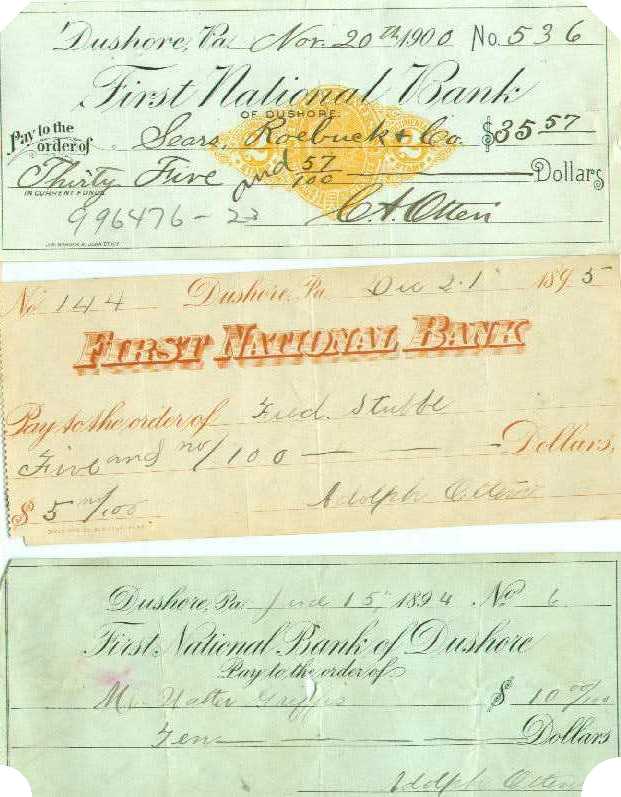 Dushore, Pa. Nov. 20th 1900 No. 536
First National Bank
OF DUSHORE.
Pay to the order of Sears, Roebuck & Co. $35 57
Thirty Five and 57/100 Dollars
IN CURRENT FUNDS
996476-23 C.A. Otten
No. 144 Dushore, Pa. Dec 21 1895
FIRST NATIONAL BANK
Pay to the order of Fred. Stubbe
Five and no/100 Dollars,
$ 5 no/100 Adolph Otten
Dushore, Pa. June 15 1894 No. 6
First National Bank of Dushore
Pay to the order of
Mr. Walter Griffis $ 10 00/100
Ten Dollars
Adolph Otten